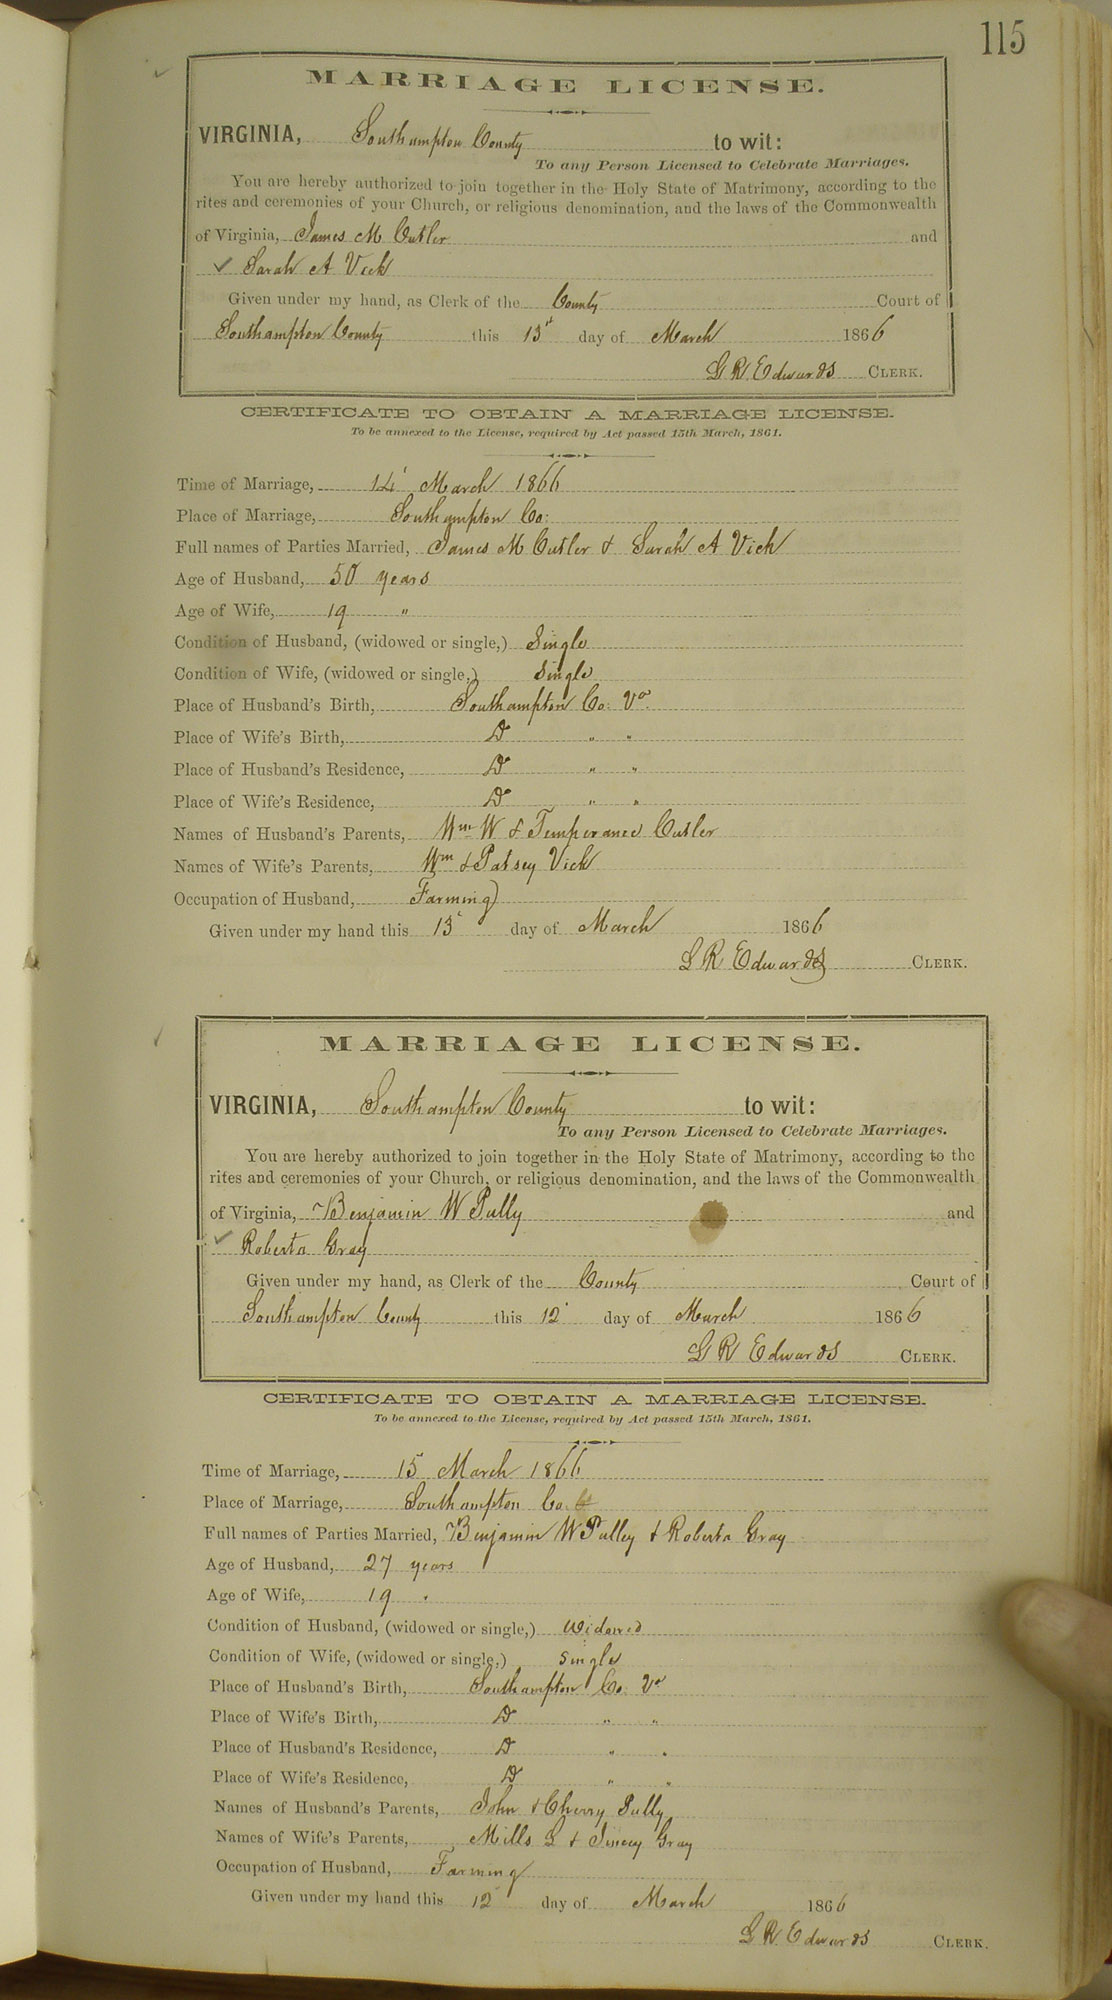 115
MARRIAGE LICENSE.
VIRGINIA, Southampton County to wit:
To any Person Licensed to Celebrate Marriages.
You are hereby authorized to join together in the Holy State of Matrimony, according to the
rites and ceremonies of your Church, or religious denomination, and the laws of the Commonwealth
of Virginia, James M Cutler and
✓ Sarah A Vick
Given under my hand, as Clerk of the County Court of
Southampton County this 13 day of March 1866
L R Edwards CLERK.
CERTIFICATE TO OBTAIN A MARRIAGE LICENSE.
To be annexed to the License, required by Act passed 15th March, 1861.
Time of Marriage, 14 March 1866
Place of Marriage, Southampton Co:
Full names of Parties Married, James M Cutler & Sarah A Vick
Age of Husband, 50 years
Age of Wife, 19 "
Condition of Husband, (widowed or single,) Single
Condition of Wife, (widowed or single,) Single
Place of Husband's Birth, Southampton Co: Va
Place of Wife's Birth, Do " "
Place of Husband's Residence, Do " "
Place of Wife's Residence, Do " "
Names of Husband's Parents, Wm W & Temperance Cutler
Names of Wife's Parents, Wm & Patsey Vick
Occupation of Husband, Farming
Given under my hand this 13 day of March 1866
L R Edwards CLERK.
MARRIAGE LICENSE.
VIRGINIA, Southampton County to wit:
To any Person Licensed to Celebrate Marriages.
You are hereby authorized to join together in the Holy State of Matrimony, according to the
rites and ceremonies of your Church, or religious denomination, and the laws of the Commonwealth
of Virginia, Benjamin W Pully and
✓ Roberta Gray
Given under my hand, as Clerk of the County Court of
Southampton County this 12 day of March 1866
L R Edwards CLERK.
CERTIFICATE TO OBTAIN A MARRIAGE LICENSE.
To be annexed to the License, required by Act passed 15th March, 1861.
Time of Marriage, 15 March 1866
Place of Marriage, Southampton Co:
Full names of Parties Married, Benjamin W Pulley & Roberta Gray
Age of Husband, 27 years
Age of Wife, 19 "
Condition of Husband, (widowed or single,) Widowed
Condition of Wife, (widowed or single,) Single
Place of Husband's Birth, Southampton Co: Va
Place of Wife's Birth, Do " "
Place of Husband's Residence, Do " "
Place of Wife's Residence, Do " "
Names of Husband's Parents, John & Cherry Pully
Names of Wife's Parents, Mills L & Gray
Occupation of Husband, Farming
Given under my hand this 12 day of March 1866
L R Edwards CLERK.